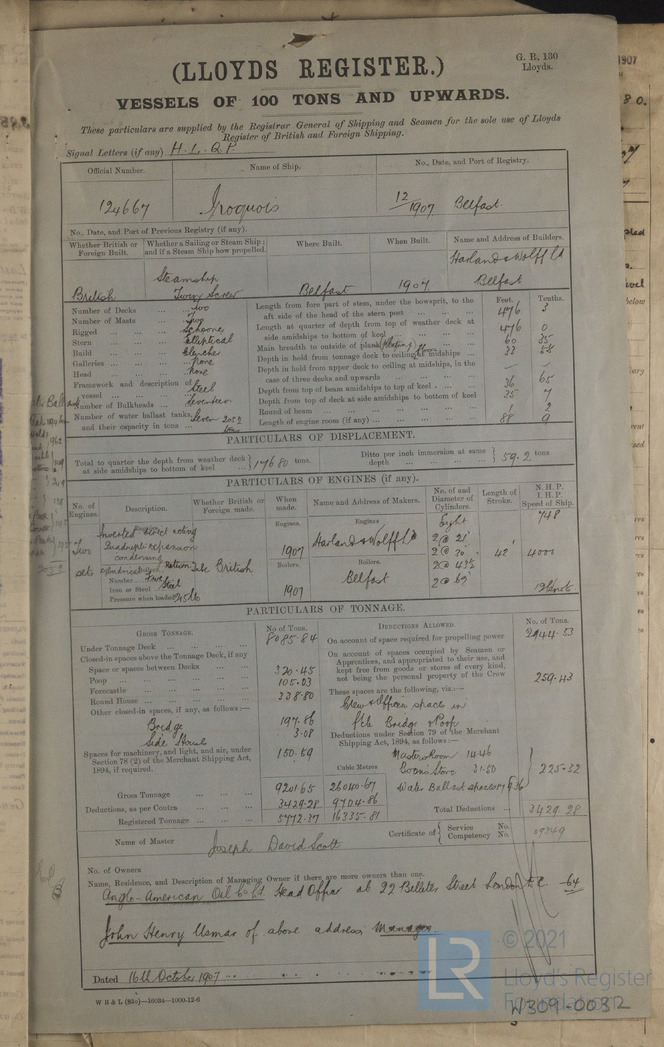 G. R. 130
Lloyds.
(LLOYDS REGISTER.)
VESSELS OF 100 TONS AND UPWARDS.
These particulars are supplied by the Registrar General of Shipping and Seamen for the sole use of Lloyds
Register of British and Foreign Shipping.
Signal Letters (if any) H. L. Q. F.
Official Number. Name of Ship. No., Date, and Port of Registry.
124667 Iroquois 12/1907 Belfast
No., Date, and Port of Previous Registry (if any).
Whether British or Foreign Built. Whether a Sailing or Steam Ship; and if a Steam Ship how propelled. Where Built. When Built. Name and Address of Builders.
British Steamship Twin Screw Belfast 1907 Harland & Wolff Ld Belfast
Feet. Tenths.
Number of Decks ... Two
Number of Masts ... Two
Rigged ... Schooner
Stern ... Elliptical
Build ... Clencher
Galleries ... None
Head ... None
Framework and description of vessel ... Steel
Number of Bulkheads ... Seventeen
Number of water ballast tanks, and their capacity in tons ... Seven tons
Length from fore part of stem, under the bowsprit, to the aft side of the head of the stern post 476 3
Length at quarter of depth from top of weather deck at side amidships to bottom of keel 476 0
Main breadth to outside of plank (plating) 60 35
Depth in hold from tonnage deck to ceiling at midships
Depth in hold from upper deck to ceiling at midships, in the case of three decks and upwards
Depth from top of beam amidships to top of keel 36 65
Depth from top of deck at side amidships to bottom of keel
Round of beam 1 2
Length of engine room (if any) 88 9
PARTICULARS OF DISPLACEMENT.
Total to quarter the depth from weather deck at side amidships to bottom of keel } 17680 tons.
Ditto per inch immersion at same depth } 59.2 tons
PARTICULARS OF ENGINES (if any).
No. of Engines. Description. Whether British or Foreign made. When made. Name and Address of Makers. No. of and Diameter of Cylinders. Length of Stroke. N. H. P. I. H. P. Speed of Ship.
Engines. Engines Eight 748
Two sets Inverted direct acting Quadruple expansion condensing
British 1907 Harland & Wolff Ld 2 @ 21 42 4000
Boilers. Boilers.
Number
Iron or Steel Steel
Pressure when loaded
1907 Belfast 12 knots
PARTICULARS OF TONNAGE.
GROSS TONNAGE. No. of Tons. DEDUCTIONS ALLOWED. No. of Tons.
Under Tonnage Deck 8085.84
Closed-in spaces above the Tonnage Deck, if any
Space or spaces between Decks 320.45
Poop 105.03
Forecastle 338.80
Round House
Other closed-in spaces, if any, as follows:—
Bridge 197.86
Side House 3.08
Spaces for machinery, and light, and air, under Section 78 (2) of the Merchant Shipping Act, 1894, if required. 150.59
Cubic Metres
Gross Tonnage 9201.65 26040.67
Deductions, as per Contra 3429.28 9704.86
Registered Tonnage 5772.37 16335.81
On account of space required for propelling power 2944.53
On account of spaces occupied by Seamen or Apprentices, and appropriated to their use, and kept free from goods or stores of every kind, not being the personal property of the Crew 259.43
These spaces are the following, viz.:—
Crew & Officers spaces in
fcle Bridge & Poop
Deductions under Section 79 of the Merchant Shipping Act, 1894, as follows:—
Masters Room 14.46
Boatswains Store 31.50
Water Ballast spaces
225.32
Total Deductions 3429.28
Name of Master Joseph David Scott
Certificate of { Service No.
Competency No.
No. of Owners
Name, Residence, and Description of Managing Owner if there are more owners than one.
Anglo-American Oil Co Ld Head Office at 22 Billiter Street London E.C. 64
John Henry Usmar of above address Manager
Dated 16th October 1907
W B & L (83o)—16034—1000-12-6
© 2021
LR
Lloyd's Register
Foundation
W309-0032